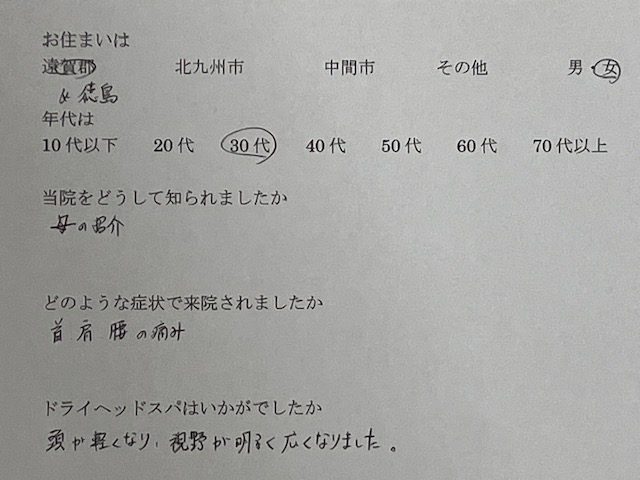 お住まいは
遠賀郡 北九州市 中間市 その他 男・女
& 徳島
年代は
10代以下 20代 30代 40代 50代 60代 70代以上
当院をどうして知られましたか
母の紹介
どのような症状で来院されましたか
首 肩 腰の痛み
ドライヘッドスパはいかがでしたか
頭が軽くなり、視野が明るく広くなりました。